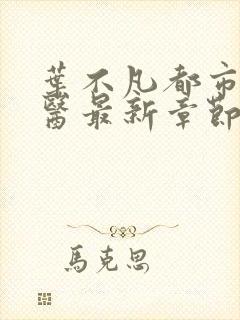 葉不凡都市
醫最新章節
馬克思